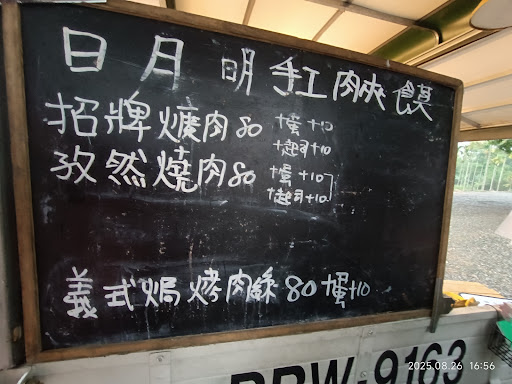 日月明手工肉夾食莫
招牌燻肉80 +蛋+10
+起司+10
孜然燒肉80 +蛋+10
+起司+10
義式焗烤肉絲80+蛋+10
BBW-9163
2025.08.26 16:56